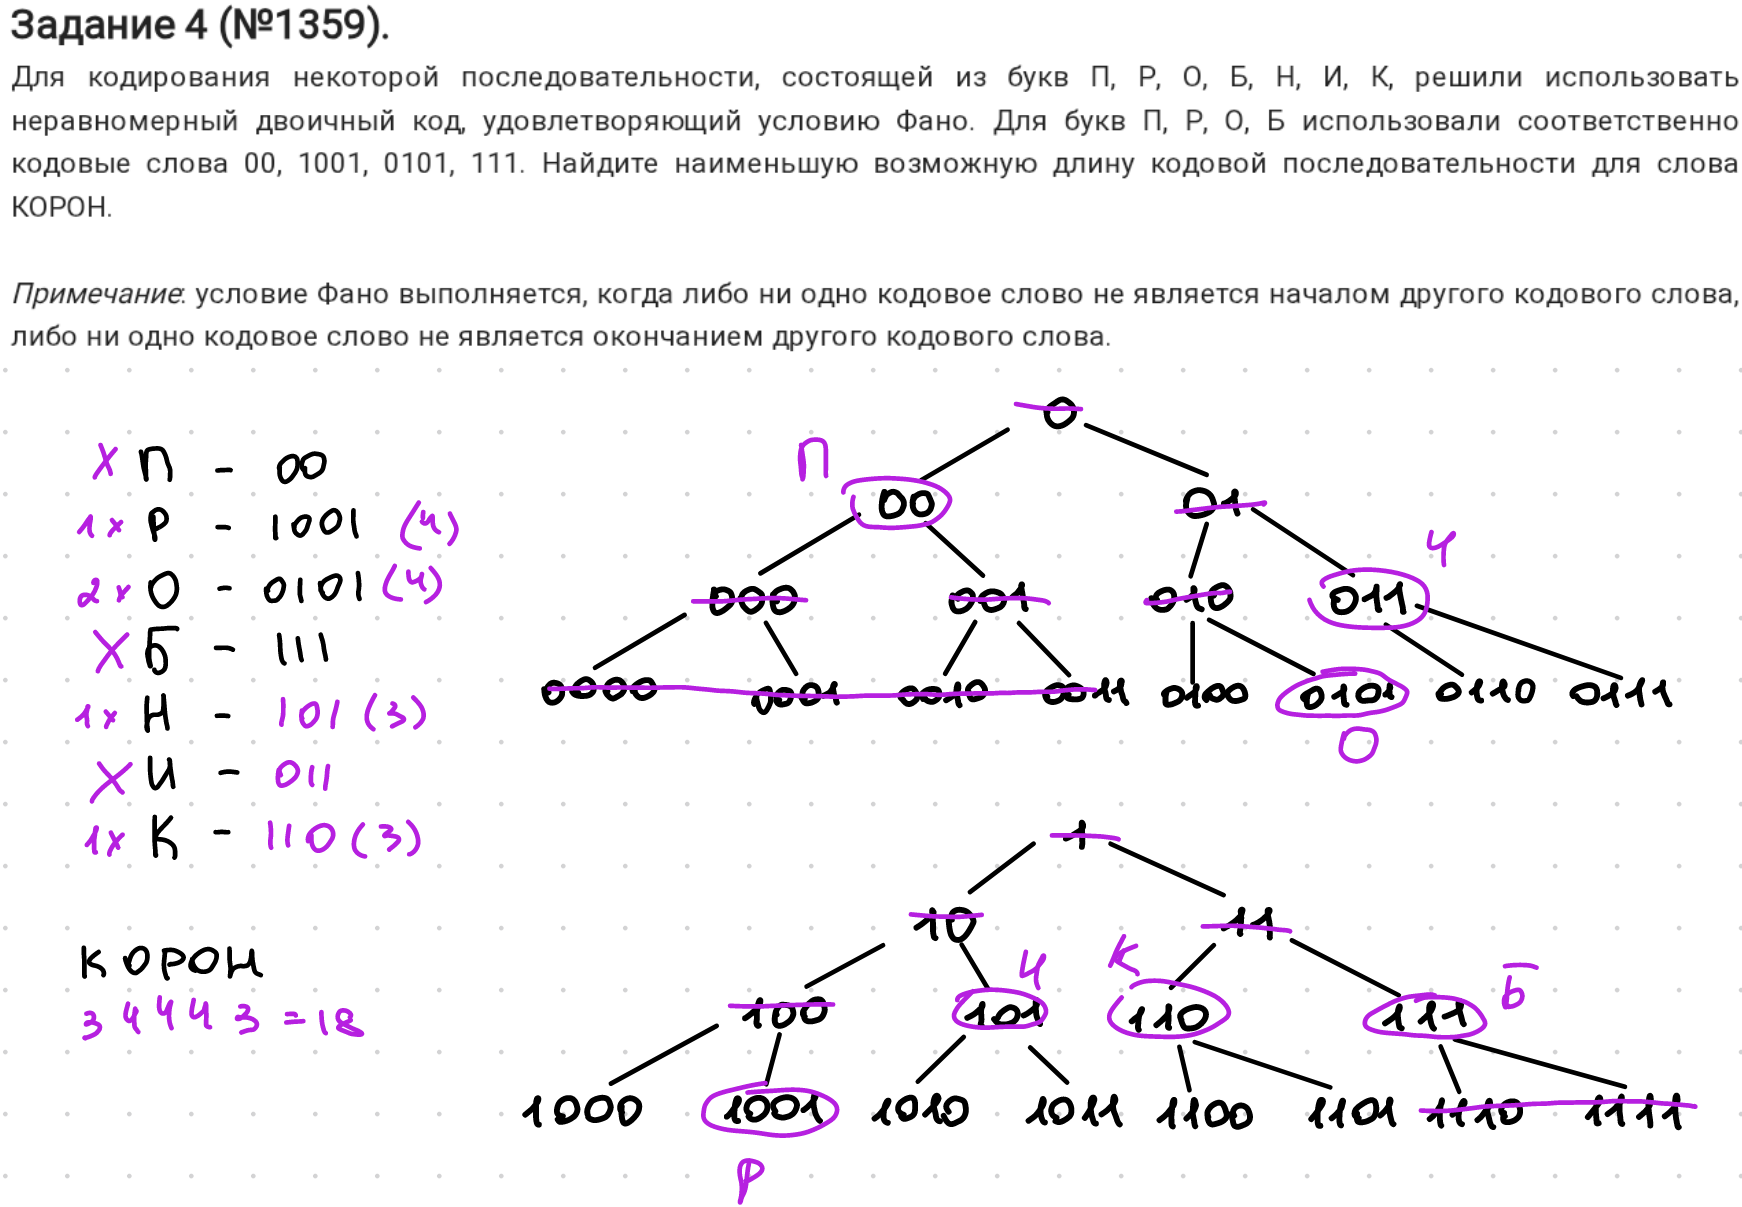 Задание 4 (№1359).
Для кодирования некоторой последовательности, состоящей из букв П, Р, О, Б, Н, И, К, решили использовать
неравномерный двоичный код, удовлетворяющий условию Фано. Для букв П, Р, О, Б использовали соответственно
кодовые слова 00, 1001, 0101, 111. Найдите наименьшую возможную длину кодовой последовательности для слова
КОРОН.
Примечание: условие Фано выполняется, когда либо ни одно кодовое слово не является началом другого кодового слова,
либо ни одно кодовое слово не является окончанием другого кодового слова.
х П - 00
1х Р - 1001 (4)
2х О - 0101 (4)
х Б - 111
1х Н - 101 (3)
х И - 011
1х К - 110 (3)
КОРОН
3 4 4 4 3 = 18
0
П
00 01
Ч
000 001 010 011
0000 0001 0010 0011 0100 0101 0110 0111
О
1
10 11
Ч К Б
100 101 110 111
1000 1001 1010 1011 1100 1101 1110 1111
Р